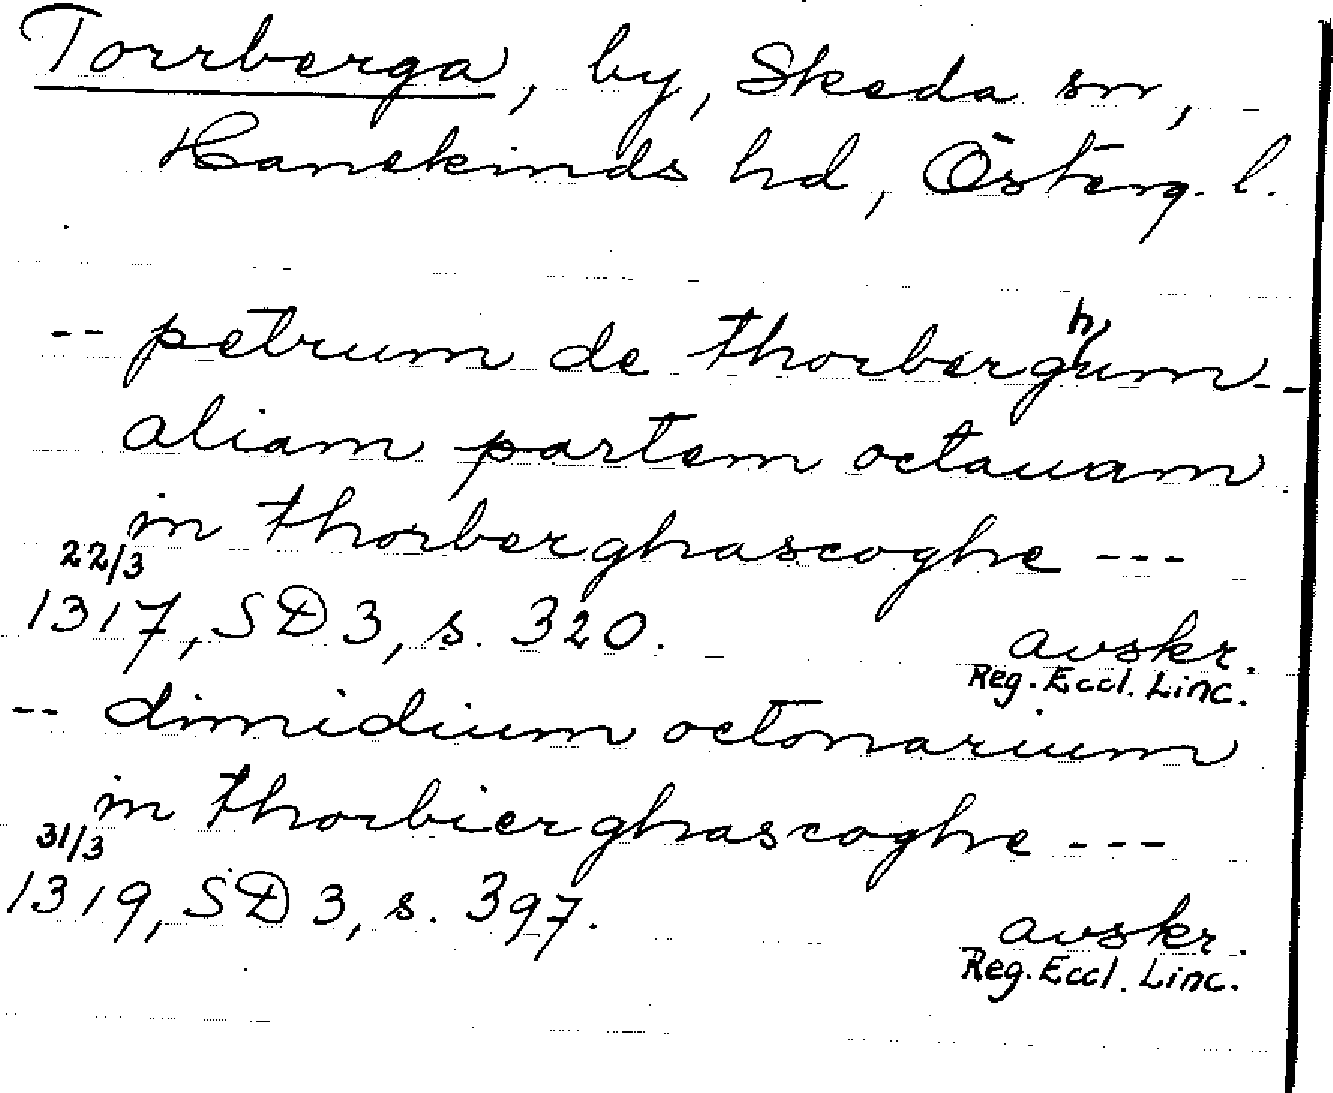 Torrberga, by, Skeda sn,
Hanekinds hd, Österg. l.
-- petrum de thorberghum --
aliam partem octauam
in thorberghascoghe ---
22/3
1317, SD 3, s. 320.
avskr.
Reg. Eccl. Linc.
-- dimidium octonarium
in thorbierghascoghe ---
31/3
1319, SD 3, s. 397.
avskr.
Reg. Eccl. Linc.